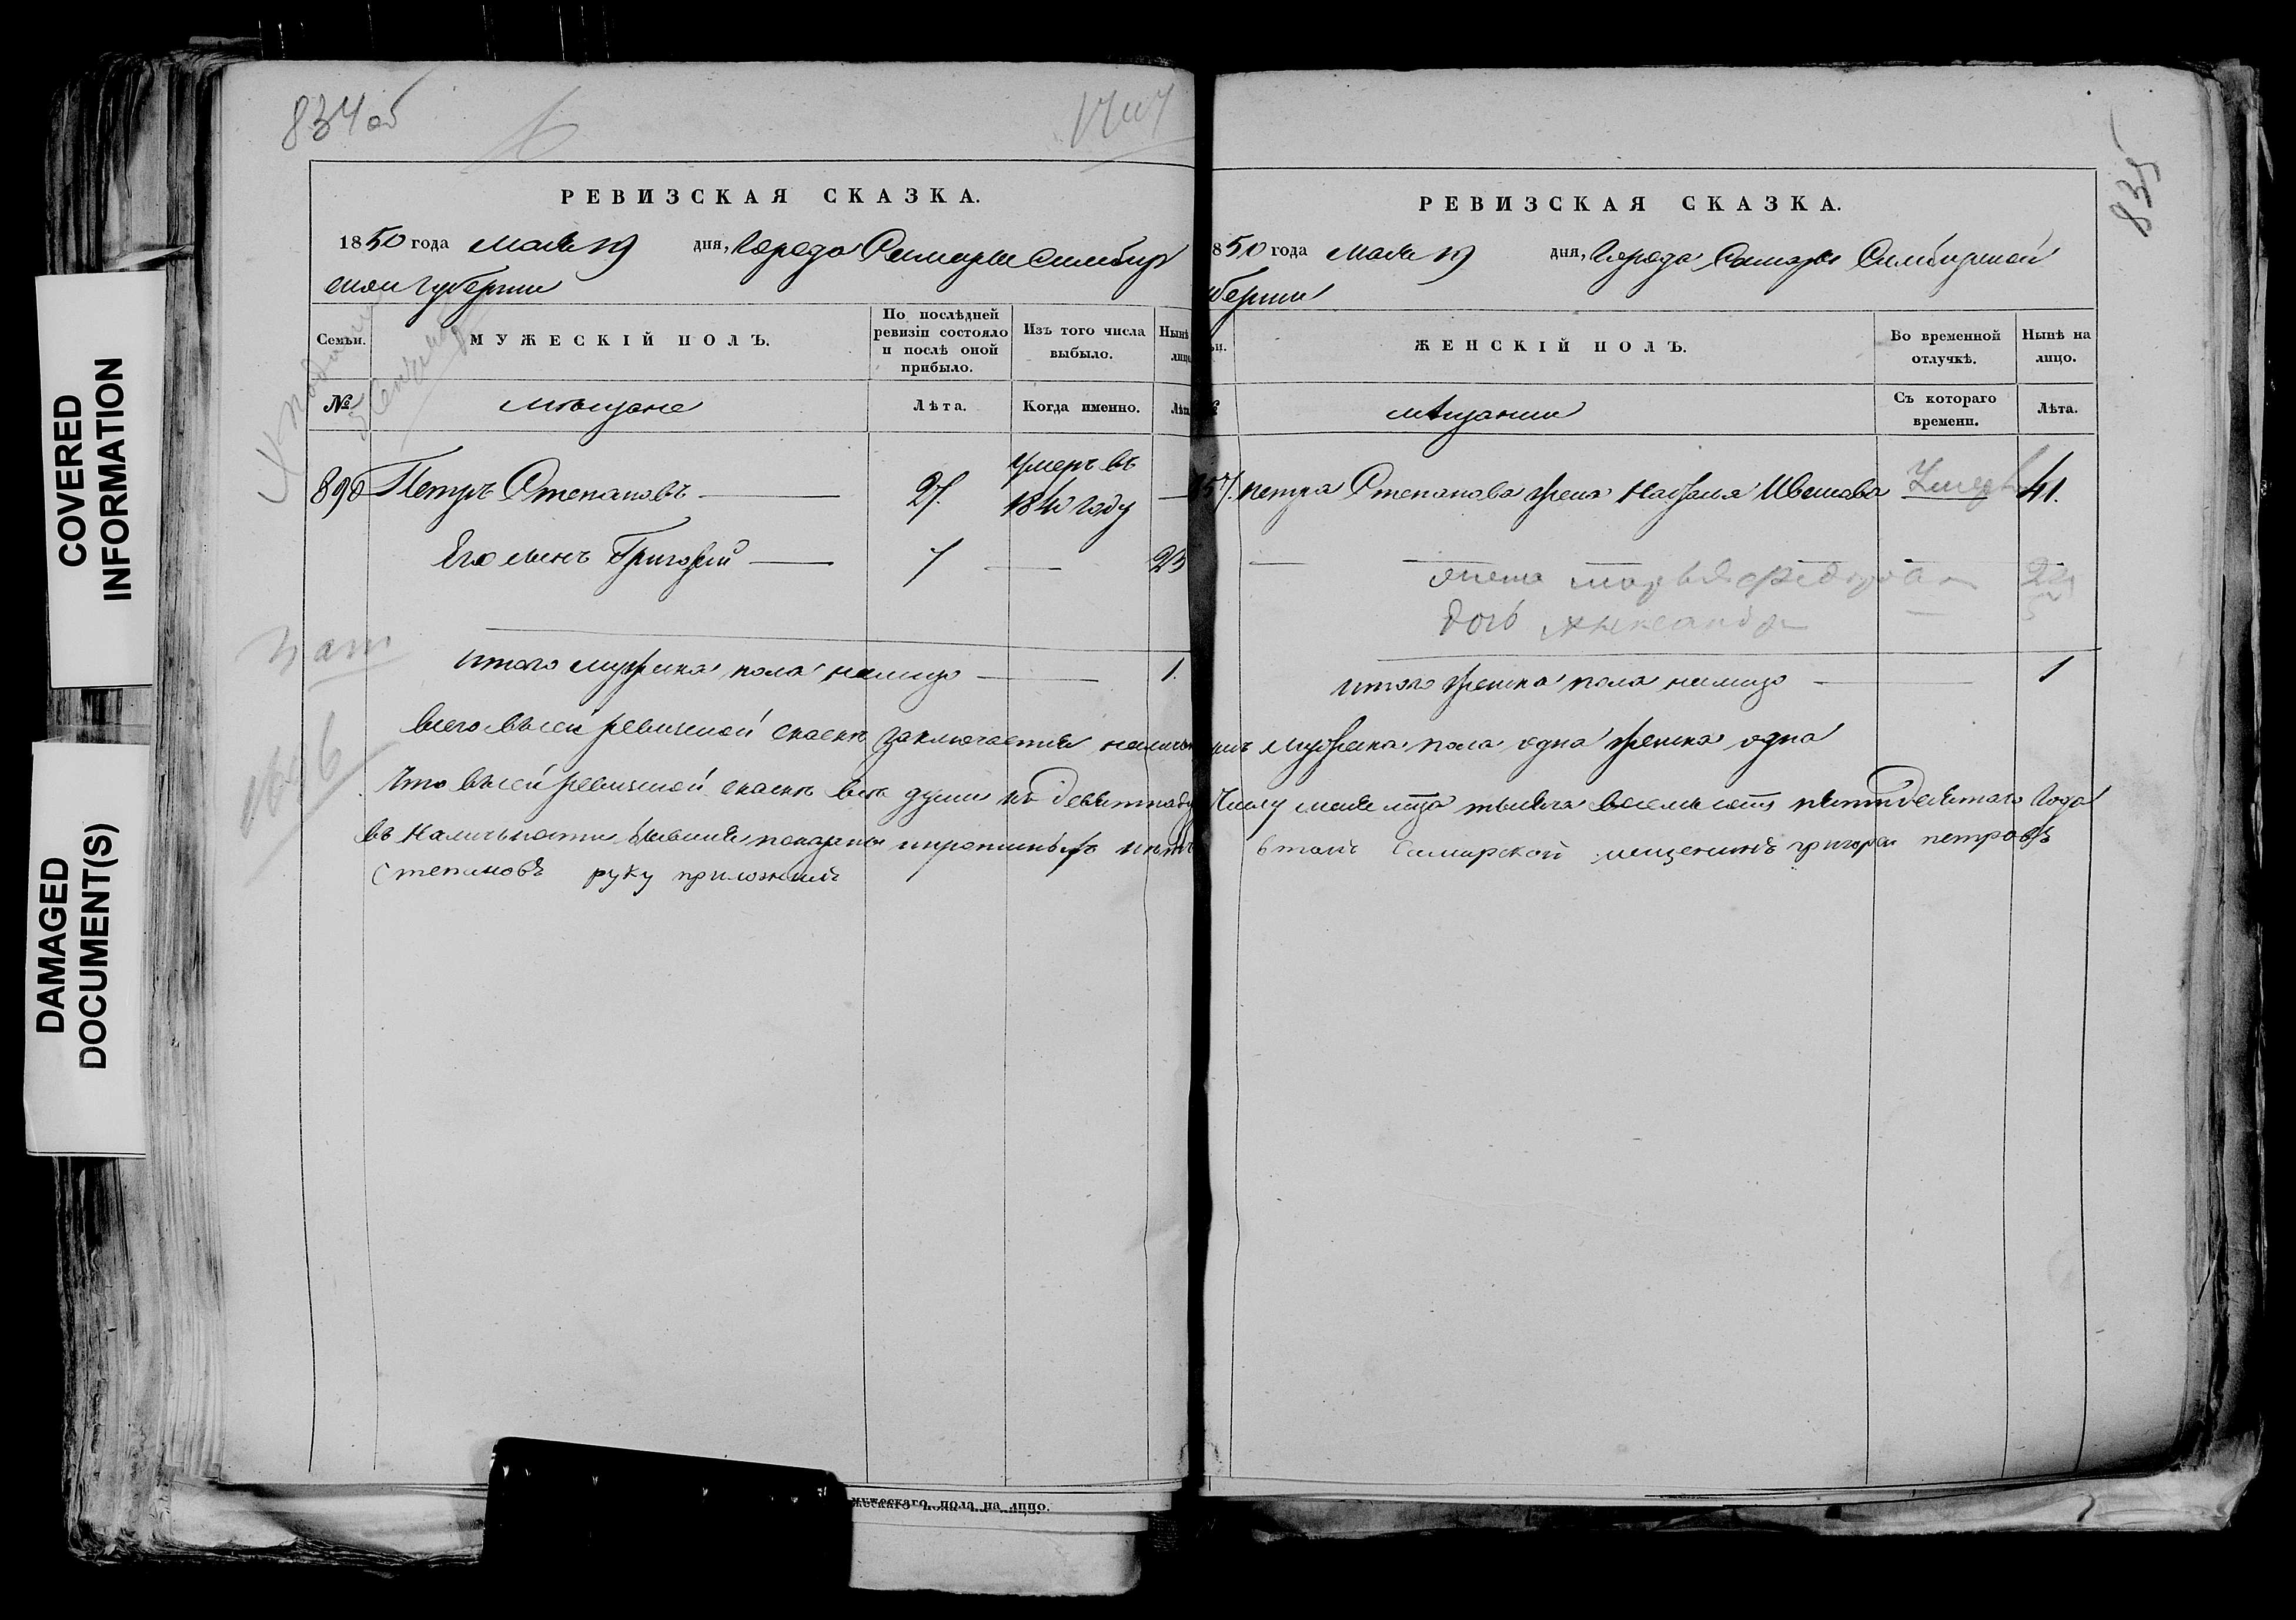 COVERED
INFORMATION
DAMAGED
DOCUMENT(S)
834 об
РЕВИЗСКАЯ СКАЗКА.
1850 года Мая 19 дня, Города Самары Симбир
ской Губернии
Семьи.
МУЖЕСКІЙ ПОЛЪ.
По послѣдней
ревизіи состояло
и послѣ оной
прибыло.
Изъ того числа
выбыло.
Нынѣ
лицо
№
мѣщане
Лѣта.
Когда именно.
Лѣта
890 Петръ Степановъ — 27. умеръ въ
1840 году —
Его сынъ Григорій — 7 — 23
Итого мужеска пола налицо — 1.
835
РЕВИЗСКАЯ СКАЗКА.
850 года Мая 19 дня, Города Самары Симбирской
убернии
ЖЕНСКІЙ ПОЛЪ.
Во временной
отлучкѣ.
Нынѣ на
лицо.
мѣщанки
Съ котораго
времени.
Лѣта.
петра Степанова жена Наталья Иванова 41.
жена марья федорова
дочь александра
итого женска пола налицо — 1
Всего въ сей ревизской сказкѣ заключается наличныхъ мужеска пола одна женска одна
Что въ сей ревизской сказкѣ всѣ души къ девятнадцатому Числу мая мца тысяча восемь сотъ пятидесятаго Года
въ Наличности бывшия показаны и прописныхъ нѣтъ в томъ Самарской мещенинъ григорей петровъ
Степановъ руку приложилъ
мужескаго пола на лицо.